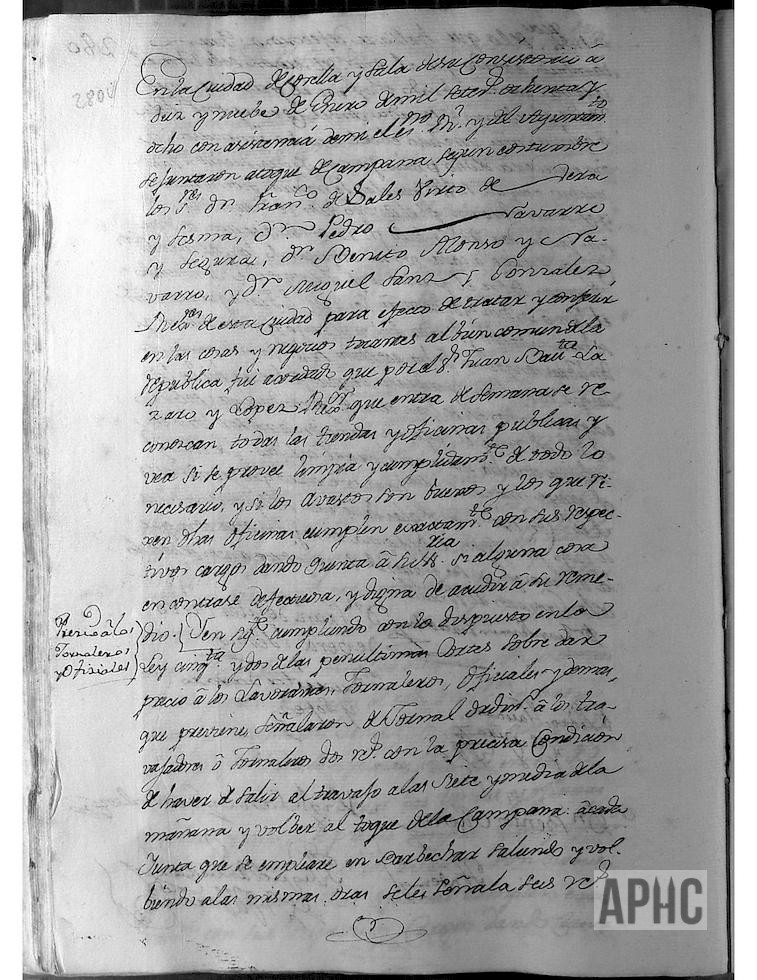 En la Ciudad de Corella y Sala de su Consistorio à
diez y nuebe de Enero de mil seted.s ochenta y
ocho con asistencia de mi el es.no R.l y del Ayuntam.to
se juntaron a toque de Campana segun costumbre
los S.res d.n Fran.co de Sales Virto de Vera
y Sesma, d.n Pedro Navarro
y Segura, d.n Benito Alonso y Na-
varro, y d.n Miguel Sanz y Gonzalez
Rex.res de esta Ciudad para efecto de tratar y conferir
en las cosas y negocios tocantes al bien comun de la
Republica fue acordado que por el S.r Juan Bau.ta La
zaro y Lopez Rex.or que entra de semana se re
conozcan todas las tiendas y oficinas publicas y
vea si se provee limpia y cumplidam.te de todo lo
necesario, y si los Avastos son buenos y los que ri-
xen dhas oficinas cumplen exactam.te con sus respec-
tivos cargos dando quenta à su S.ria si alguna cosa
encontrase defectuosa, y digna de acudir à su reme-
dio. Yten cumpliendo con lo dispuesto en la
Precio à los
Jornaleros
y Oficiales
Ley cinq.ta y dos de las penultimas Cortes sobre dar
precio à los Lavoranes, Jornaleros, Oficiales y demas,
que previene, Señalaron de Jornal ordin.o à los tra-
vajadores ò Jornaleros dos r.s con la precisa Condicion
de haver de salir al travajo a las siete y media de la
mañana y volber al toque de la Campana: à cada
Junta que se empleare en Barbechar saliendo y vol-
biendo a las mismas oras se les señala seis r.s
280
APHC